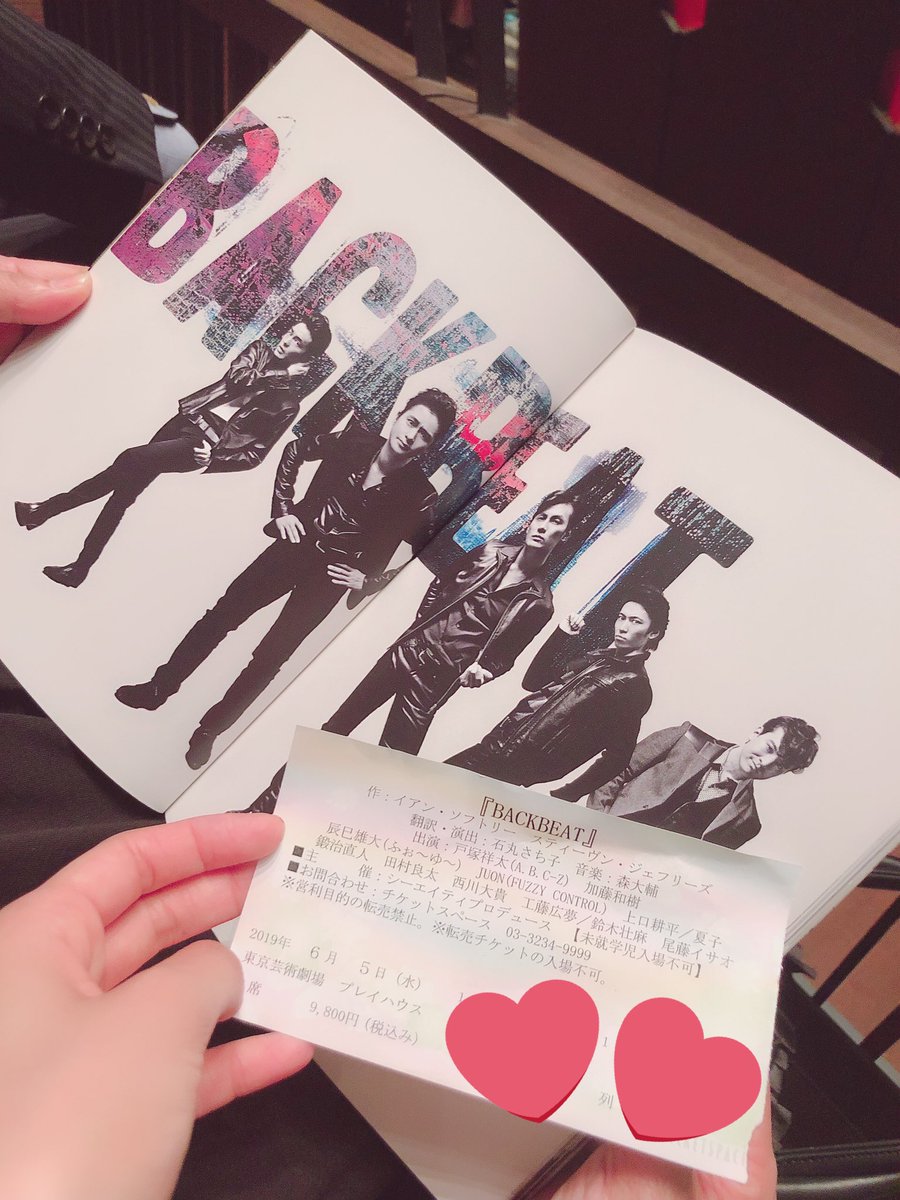 BACKBEAT
『BACKBEAT』
作：イアン・ソフトリー スティーヴン・ジェフリーズ
翻訳・演出：石丸さち子 音楽：森大輔
出演：戸塚祥太(A.B.C-Z) 加藤和樹
辰巳雄大(ふぉ〜ゆ〜) JUON(FUZZY CONTROL) 上口耕平／夏子
鍛治直人 田村良太 西川大貴 工藤広夢／鈴木壮麻 尾藤イサオ
■主 催：シーエイティプロデュース 【未就学児入場不可】
■お問合わせ：チケットスペース 03-3234-9999
※営利目的の転売禁止。※転売チケットの入場不可。
2019年 6月 5日（水） 1
東京芸術劇場 プレイハウス 1
席 列
9,800円（税込み）